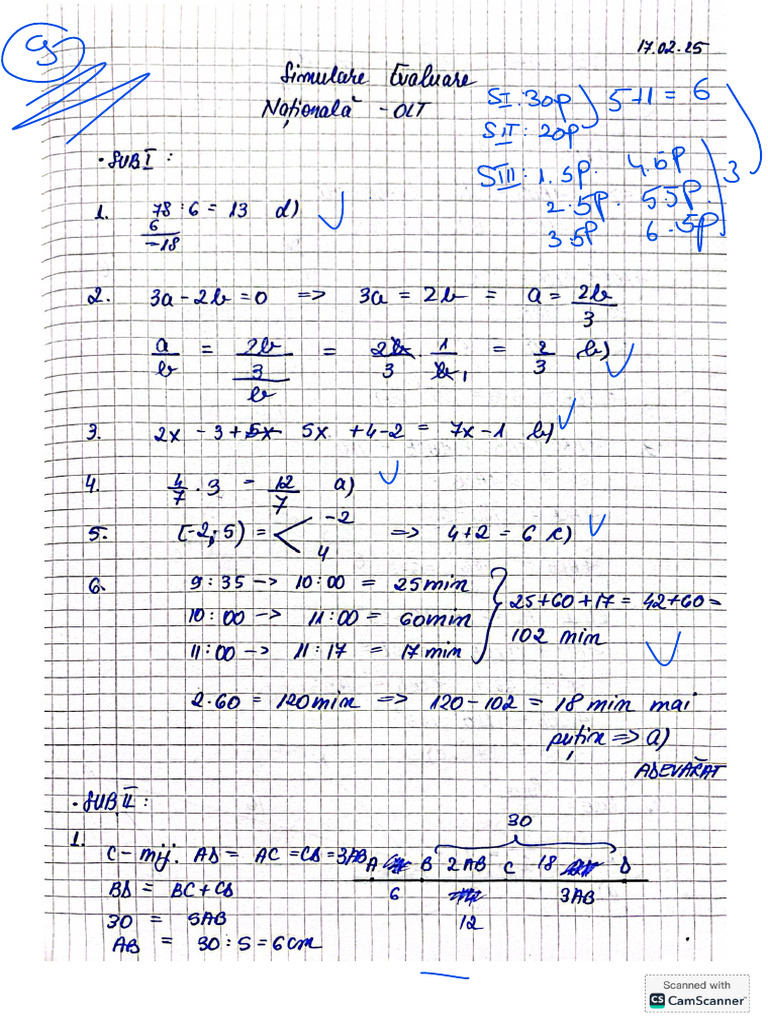 9
17.02.25
Simulare Evaluare
Națională - OLT
SI: 30p
5+1 = 6
SII: 20p
SIII: 1. 5p. 4. 5p
2. 5p. 5. 5p.
3. 5p 6. 5p
3
• SUB I :
1. 78 : 6 = 13 d)
6
-18
2. 3a - 2b = 0 => 3a = 2b = a = 2b/3
a/b = 2b/3/b = 2b/3 · 1/b, = 2/3 b)
3. 2x - 3 + 5x 5x + 4 - 2 = 7x - 1 b)
4. 4/7 · 3 = 12/7 a)
5. [-2; 5) = < -2 => 4 + 2 = 6 c)
4
6. 9:35 -> 10:00 = 25 min
10:00 -> 11:00 = 60 min
11:00 -> 11:17 = 17 min
25+60+17 = 42+60 =
102 min
2·60 = 120 min => 120 - 102 = 18 min mai
puțin => a)
ADEVĂRAT
• SUB II :
30
1. C - mij. AD = AC = CD = 3AB
A B 2AB C 18 D
BD = BC + CD
6 3AB
30 = 5AB
12
AB = 30 : 5 = 6 cm
Scanned with
CS CamScanner